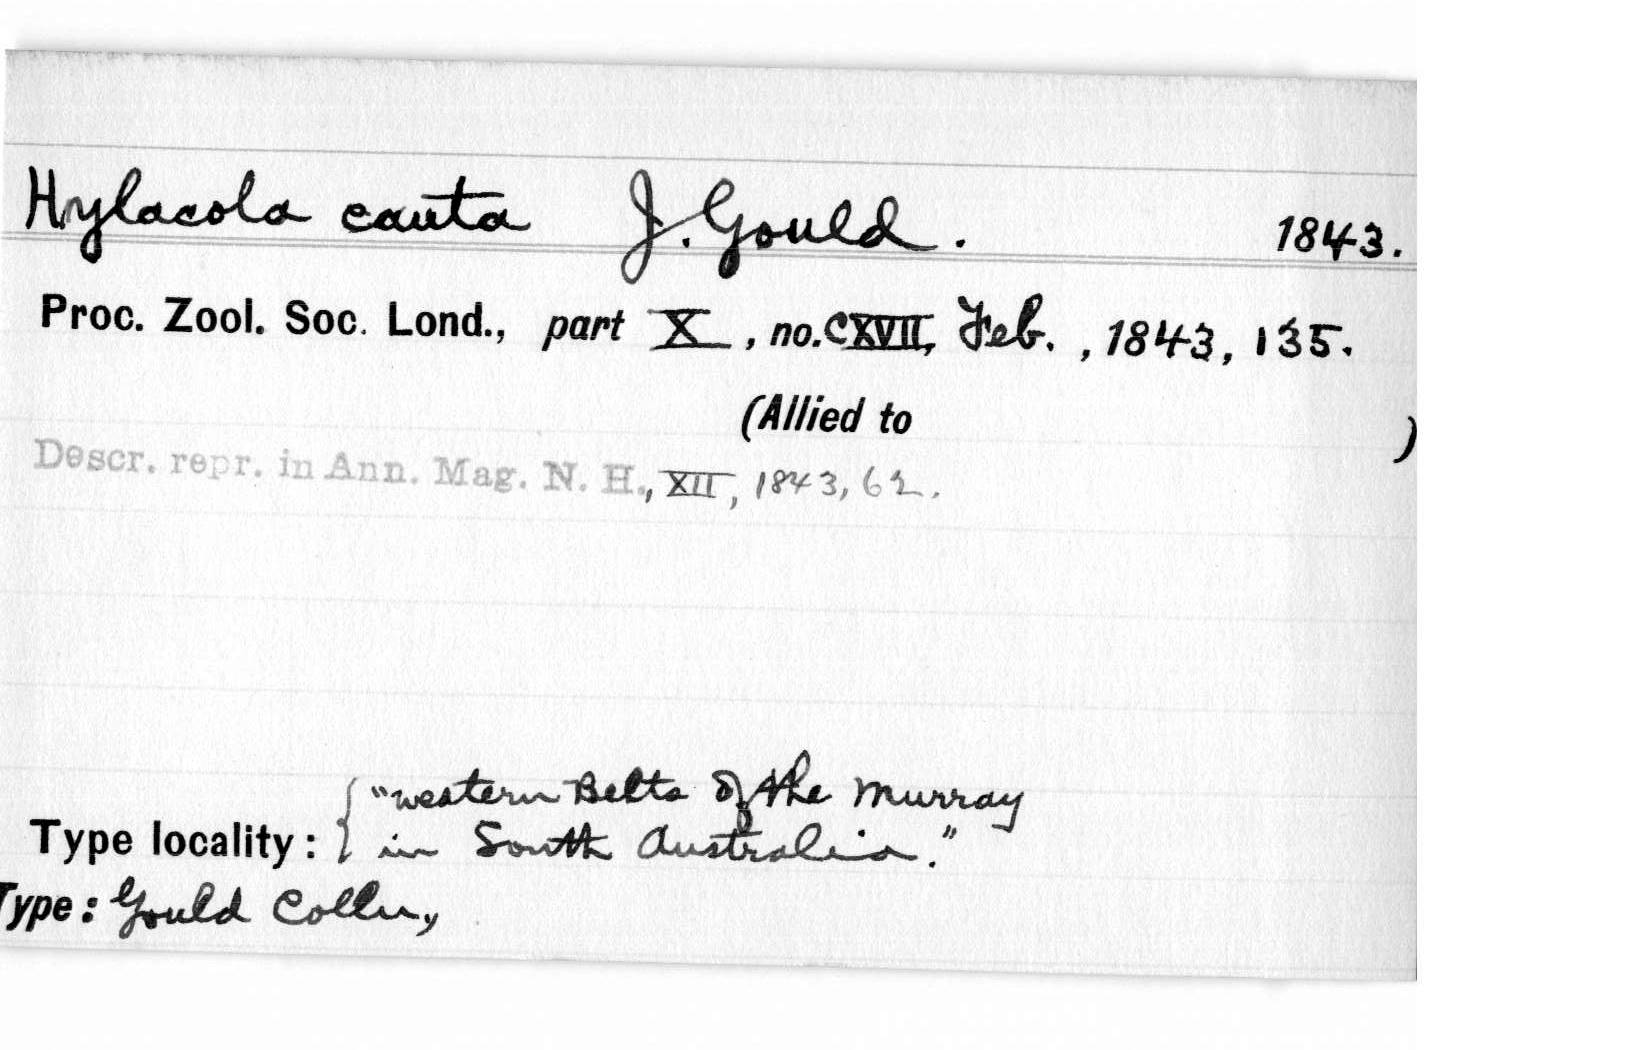 Hylacola cauta J. Gould. 1843.
Proc. Zool. Soc. Lond., part X, no. CXVII, Feb., 1843, 135.
(Allied to )
Descr. repr. in Ann. Mag. N. H., XII, 1843, 62.
"western Belts of the Murray
Type locality: { in South Australia."
Type: Gould Colln,